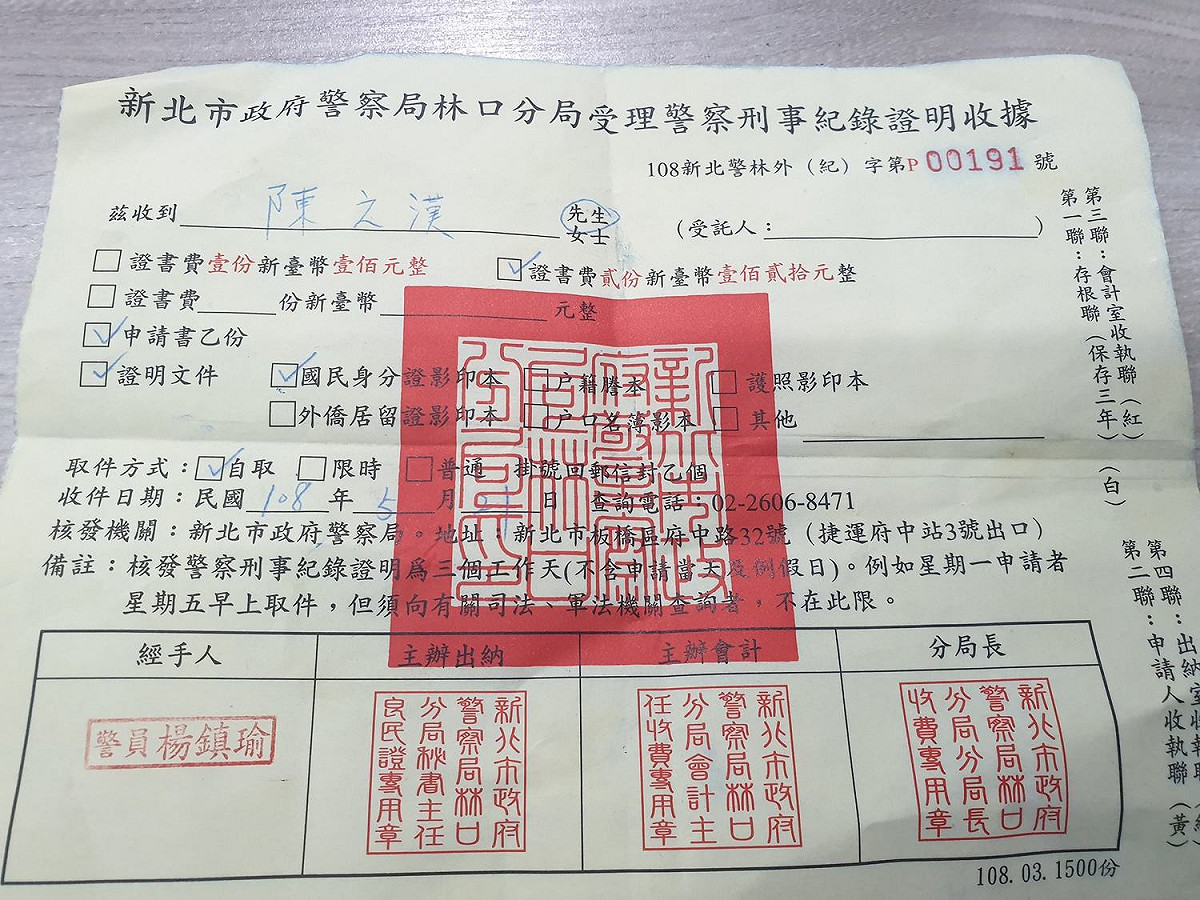 新北市政府警察局林口分局受理警察刑事紀錄證明收據
108新北警林外（紀）字第P 00191 號
茲收到 陳之漢 先生 女士 （受託人： ）
□證書費壹份新臺幣壹佰元整 ☑證書費貳份新臺幣壹佰貳拾元整
□證書費 份新臺幣 元整
☑申請書乙份
☑證明文件 ☑國民身分證影印本 □戶籍謄本 □護照影印本
□外僑居留證影印本 □戶口名簿影本 □其他
取件方式：☑自取 □限時 □普通 掛號回郵信封乙個
收件日期：民國 108 年 5 月 21 日 查詢電話：02-2606-8471
核發機關：新北市政府警察局。地址：新北市板橋區府中路32號（捷運府中站3號出口）
備註：核發警察刑事紀錄證明為三個工作天(不含申請當天及例假日)。例如星期一申請者
星期五早上取件，但須向有關司法、軍法機關查詢者，不在此限。
第一聯：存根聯（保存三年）（白）
第三聯：會計室收執聯（紅）
第二聯：申請人收執聯（黃）
第四聯：出納室收執聯
經手人 主辦出納 主辦會計 分局長
警員楊鎮瑜
新北市政府
警察局林口
分局秘書主任
良民證專用章
新北市政府
警察局林口
分局會計主
任收費專用章
新北市政府
警察局林口
分局分局長
收費專用章
108.03.1500份